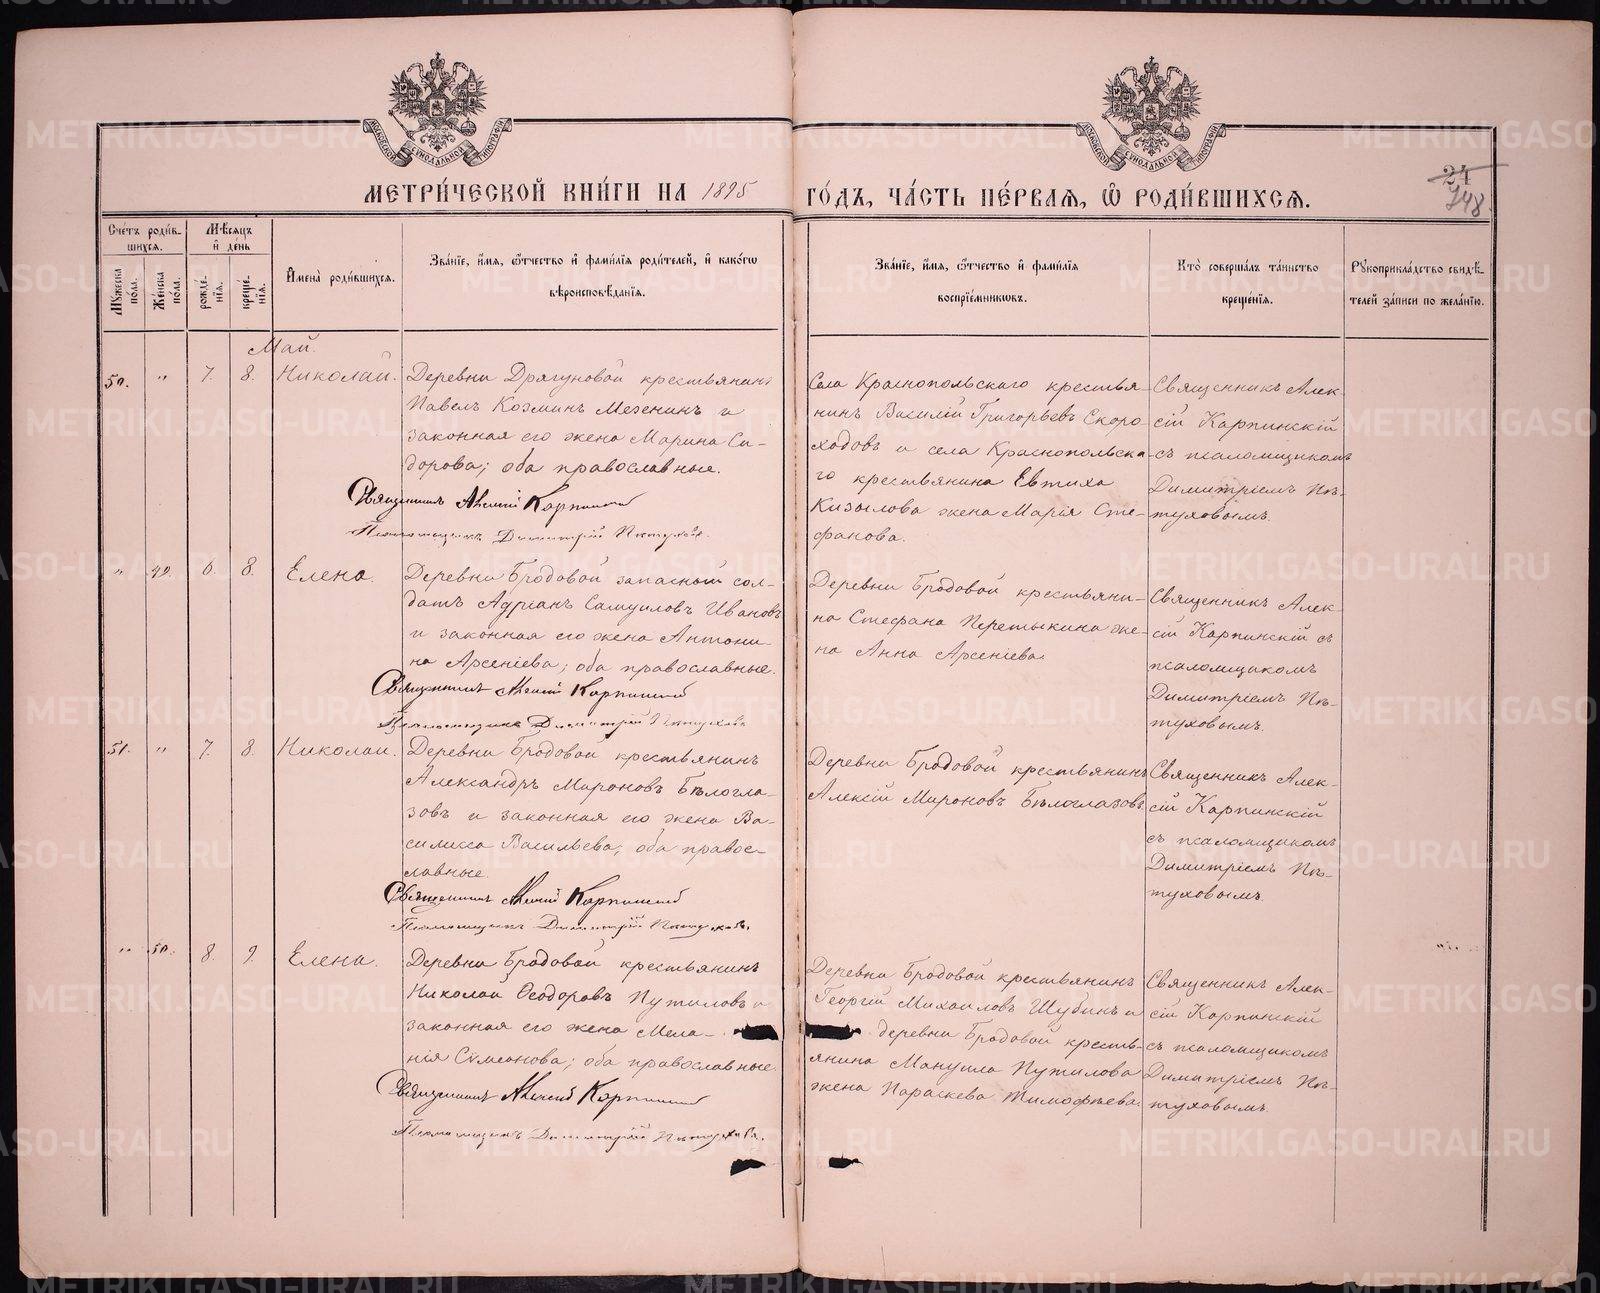 МЕТРИ́ЧЕСКОЙ КНИ́ГИ НА 1895 ГО́ДЪ, ЧА́СТЬ ПЕ́РВАѦ, Ѡ҆ РОДИ́ВШИХСѦ.
24
748
Сче́тъ роди́в-
шихсѧ.
Мꙋ́жеска по́ла.
Же́нска по́ла.
Мѣ́сѧцъ
и҆ де́нь
рожде́-
нїѧ.
креще́-
нїѧ.
И҆мена̀ роди́вшихсѧ.
Зва́нїе, и҆́мѧ, ѻ҆́тчество и҆ фами́лїѧ роди́телей, и҆ како́гѡ
вѣроисповѣ́данїѧ.
Зва́нїе, и҆́мѧ, ѻ҆́тчество и҆ фами́лїѧ
воспрїе́мникѡвъ.
Кто̀ соверша́лъ та́инство
креще́нїѧ.
Рꙋкоприкла́дство свидѣ́-
телей за́писи по жела́нїю.
Май.
50. " 7. 8. Николай.
Деревни Дрягуновой крестьянинъ
Павелъ Козминъ Мезенинъ и
законная его жена Марина Си-
дорова; оба православные.
Священникъ Алексій Карпинскій
Псаломщикъ Димитрій Пѣтуховъ.
Села Краснопольскаго крестья-
нинъ Василій Григорьевъ Скоро
ходовъ и села Краснопольска-
го крестьянина Евтиха
Кизылова жена Марія Сте-
фанова.
Священникъ Алек-
сій Карпинскій
съ псаломщикомъ
Димитріемъ Пѣ-
туховымъ.
" 49. 6. 8. Елена.
Деревни Бродовой запасной сол-
датъ Адріанъ Самуиловъ Ивановъ
и законная его жена Антони-
на Арсеніева; оба православные.
Священникъ Алексій Карпинскій
Псаломщикъ Димитрій Пѣтуховъ
Деревни Бродовой крестьяни-
на Стефана Перетыкина же-
на Анна Арсеніева.
Священникъ Алек-
сій Карпинскій съ
псаломщикомъ
Димитріемъ Пѣ-
туховымъ.
51. " 7. 8. Николай.
Деревни Бродовой крестьянинъ
Александръ Мироновъ Бѣлогла-
зовъ и законная его жена Ва-
силисса Васильева; оба правос-
лавные.
Священникъ Алексій Карпинскій
Псаломщикъ Димитрій Пѣтуховъ.
Деревни Бродовой крестьянинъ
Алексій Мироновъ Бѣлоглазовъ.
Священникъ Алек-
сій Карпинскій
съ псаломщикомъ
Димитріемъ Пѣ-
туховымъ.
" 50. 8. 9. Елена.
Деревни Бродовой крестьянинъ
Николай Ѳеодоровъ Путиловъ и
законная его жена Мела-
нія Сѵмеонова; оба православные.
Священникъ Алексій Карпинскій
Псаломщикъ Димитрій Пѣтуховъ.
Деревни Бродовой крестьянинъ
Георгій Михаиловъ Шубинъ и
деревни Бродовой кресть-
янина Мануила Путилова
жена Параскева Тимофѣева.
Священникъ Алек-
сій Карпинскій
съ псаломщикомъ
Димитріемъ Пѣ-
туховымъ.
METRIKI.GASO-URAL.RU